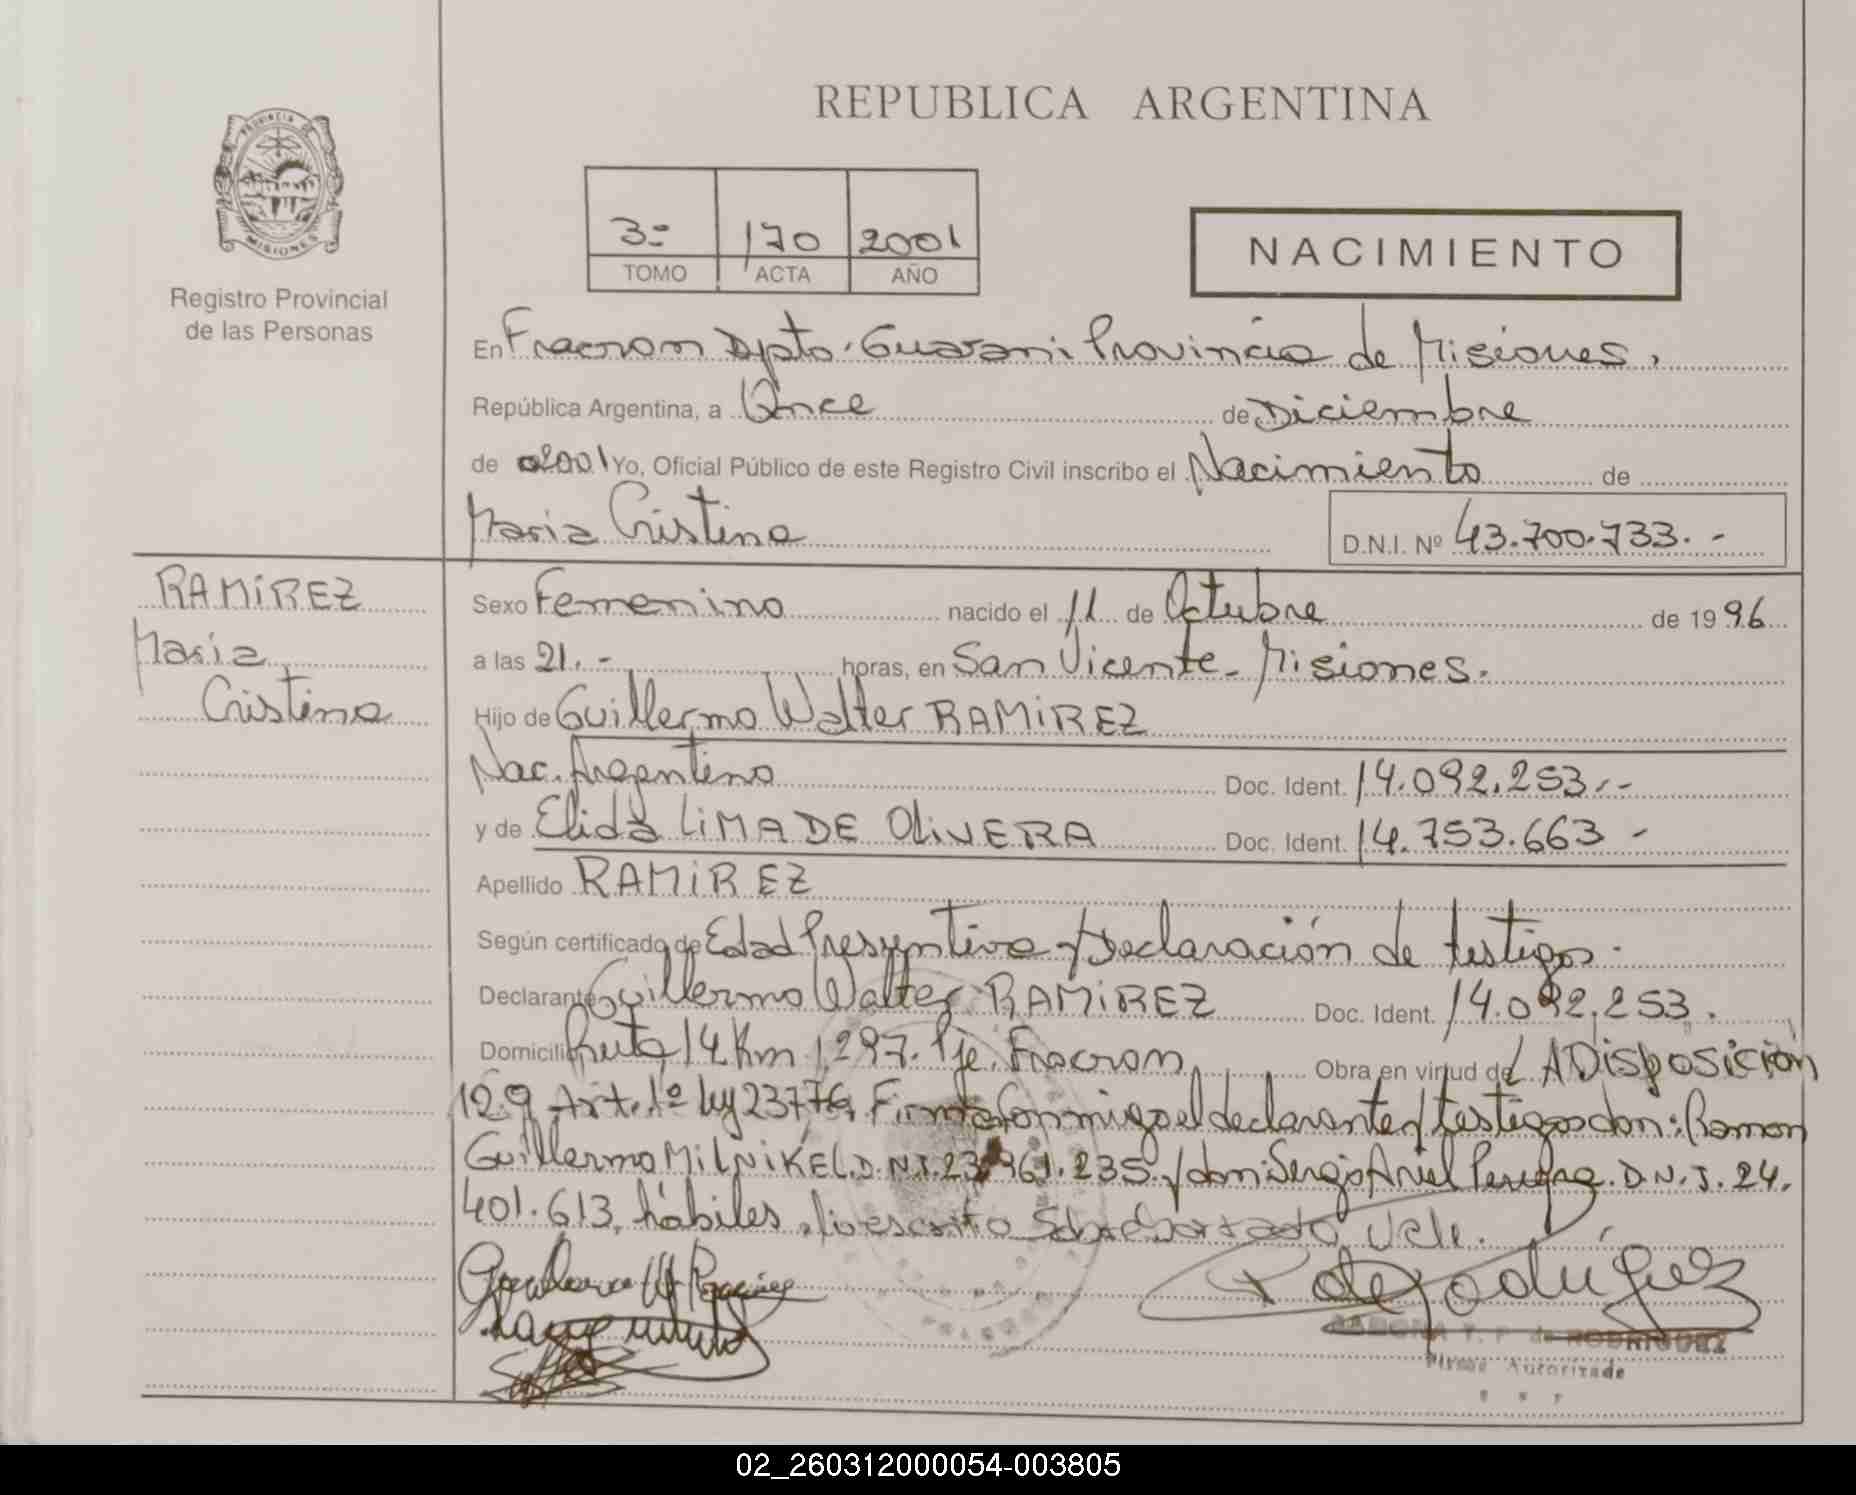 REPUBLICA ARGENTINA
PROVINCIA DE
MISIONES
Registro Provincial
de las Personas
3= 170 2001
TOMO ACTA AÑO
NACIMIENTO
En Fracron Dpto. Guarani Provincia de Misiones.
República Argentina, a Once de Diciembre
de 2001 Yo, Oficial Público de este Registro Civil inscribo el Nacimiento de
Maria Cristina D.N.I. Nº 43.700.733.-
RAMIREZ
Maria
Cristina
Sexo Femenino nacido el 11 de Octubre de 1996
a las 21.- horas, en San Vicente - Misiones.
Hijo de Guillermo Walter RAMIREZ
Nac. Argentino Doc. Ident. 14.092.253.-
y de Elida LIMA DE OLIVERA Doc. Ident. 14.753.663 -
Apellido RAMIREZ
Según certificado de Edad Presuntiva y Declaración de testigos.
Declarante Guillermo Walter RAMIREZ Doc. Ident. 14.092.253.
Domicilio Ruta 14 Km 1297. Pje. Fracron Obra en virtud de LA Disposición
129 Art. 1º Ley 23776, Firman conmigo el declarante y testigos don: Ramon
Guillermo MILNIKEL D.N.I. 23.361.235. y don: Sergio Ariel Pereyra. D.N.I. 24.
401.613, hábiles, lo escrito Sobre borrado, Vale.
RAMONA T. P. de RODRIGUEZ
Firma Autorizada
02_260312000054-003805